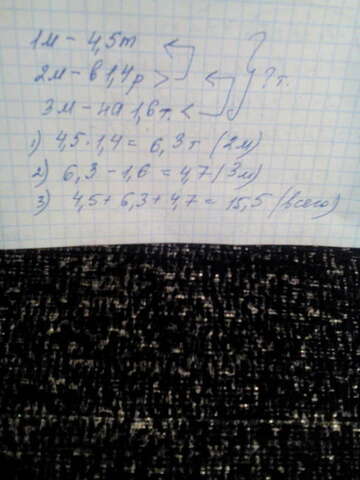 1м - 4,5т
2м - в 1,4р > ? т.
3м - на 1,6 т. <
1) 4,5 · 1,4 = 6,3 т (2м)
2) 6,3 - 1,6 = 4,7 (3м)
3) 4,5 + 6,3 + 4,7 = 15,5 (всего)